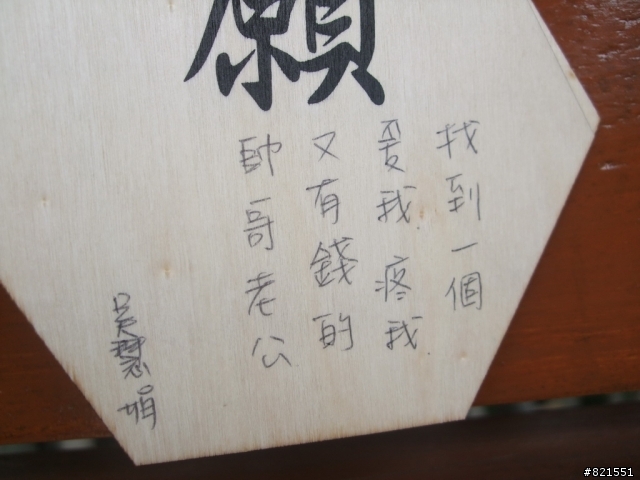 願
找到一個
愛我疼我
又有錢的
帥哥老公
吳慧娟
#821551